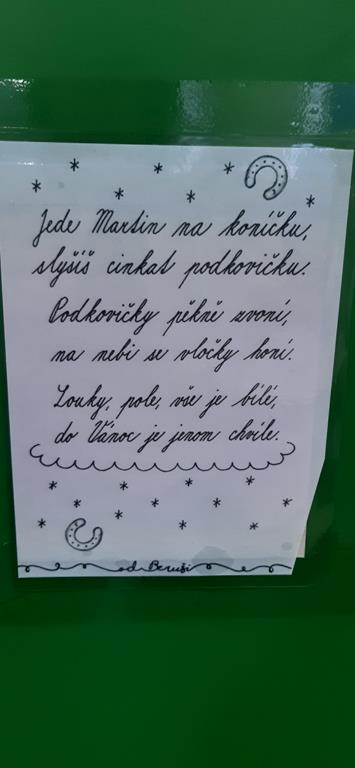 Jede Martin na koníčku,
slyšíš cinkat podkovičku.
Podkovičky pěkně zvoní,
na nebi se vločky honí.
Louky, pole, vše je bílé,
do Vánoc je jenom chvíle.
od Berušk